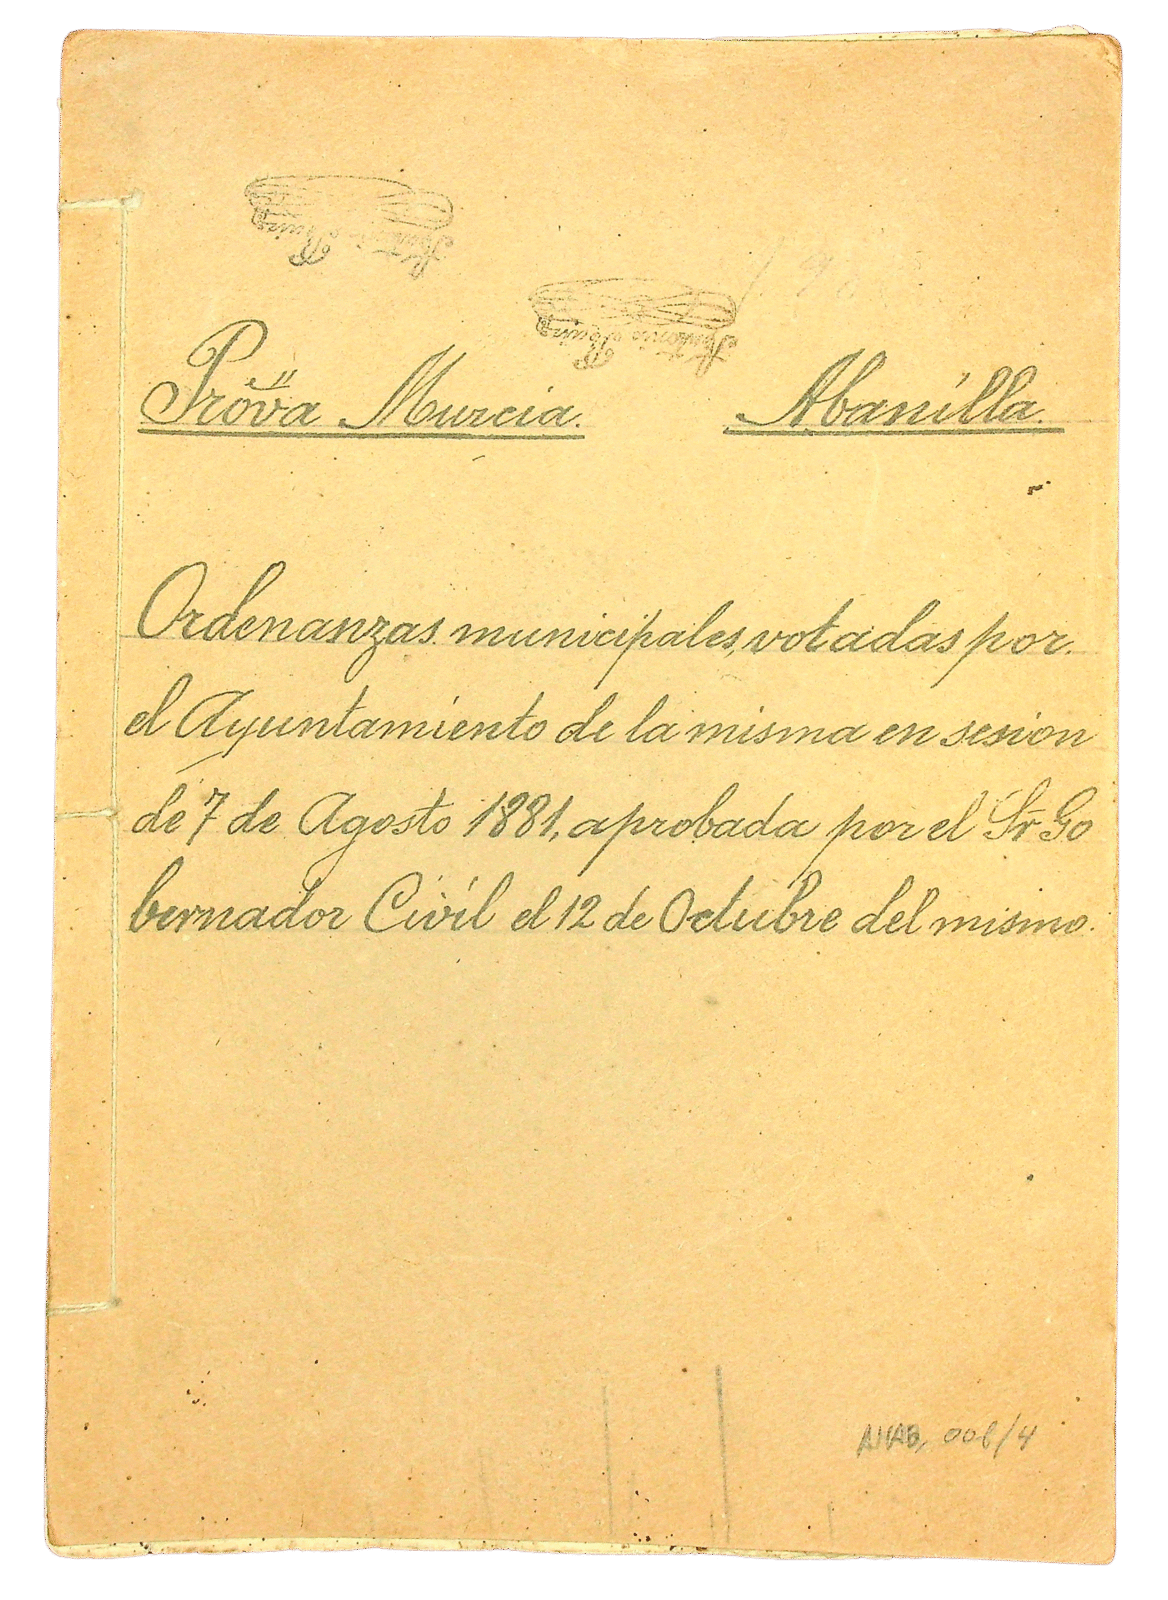 Antonio Ruiz
Antonio Ruiz
Prova Murcia. Abanilla.
Ordenanzas municipales, votadas por
el Ayuntamiento de la misma en sesion
de 7 de Agosto 1881, aprobada por el Sr Go
bernador Civil el 12 de Octubre del mismo.
006/4